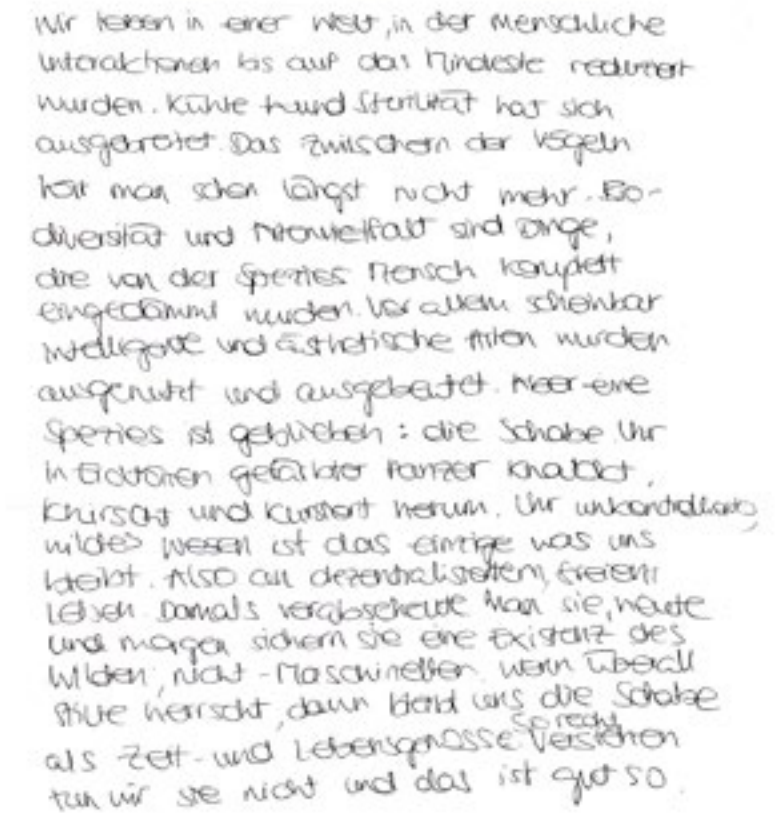 Wir leben in einer Welt, in der menschliche
Interaktionen bis auf das Mindeste reduziert
wurden. Kühle und Sterilität hat sich
ausgebreitet. Das Zwitschern der Vögeln
hört man schon längst nicht mehr. Bio-
diversität und Artenvielfalt sind Dinge,
die von der Spezies Mensch komplett
eingedämmt wurden. Vor allem scheinbar
intelligente und ästhetische Arten wurden
ausgenutzt und ausgebeutet. Aber eine
Spezies ist geblieben: die Schabe. Ihr
in Erdtönen gefärbter Panzer knackt,
knirscht und knistert herum. Ihr unkontrollierbares,
wildes Wesen ist das einzige was uns
bleibt. Also an dezentralisiertem, freien
Leben. Damals verabscheute man sie, heute
und morgen sichern sie eine Existenz des
Wilden, nicht-Maschinellen. Wenn überall
Stille herrscht, dann bleibt uns die Schabe
als Zeit- und Lebensgenosse. So recht verstehen
tun wir sie nicht und das ist gut so.